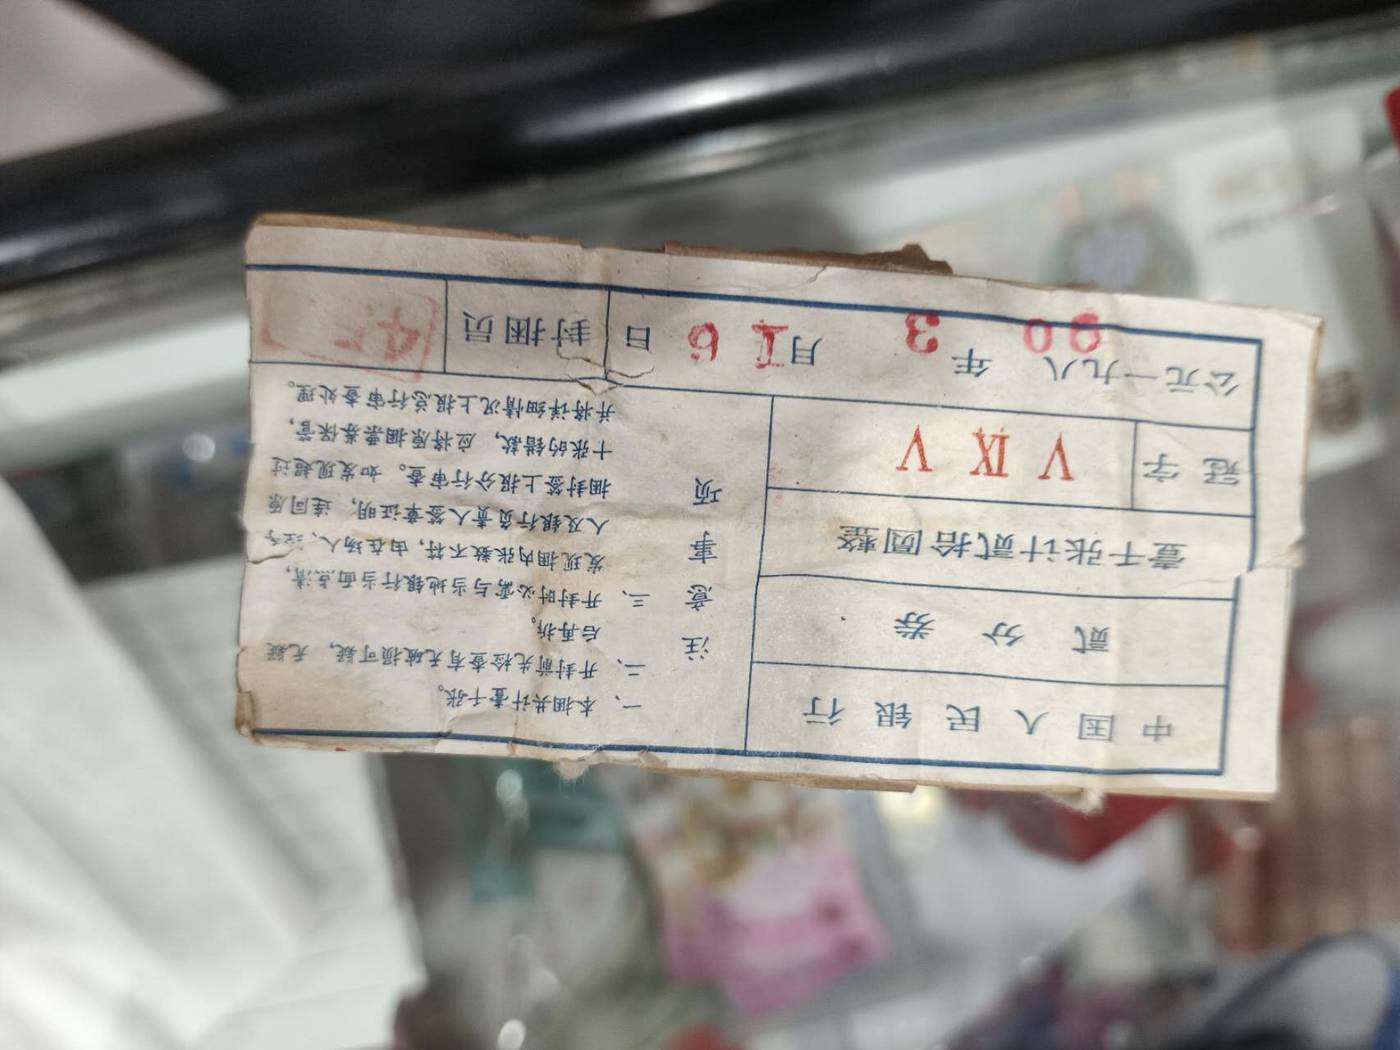 中国人民银行
贰分券
壹千张计贰拾圆整
冠字 V IX V
公元一九八90年3月16日 封捆员
注意事项
一、本捆共计壹千张。
二、开封前先检查有无破损可疑，无疑
后再拆。
三、开封时必需与当地银行当面点清，
发现捆内张数不符，由在场人、经手
人及银行负责人签章证明，连同原
捆封签上报分行审查。如发现超过
十张的错款，应将原捆票券保管，
并将详细情况上报总行审查处理。